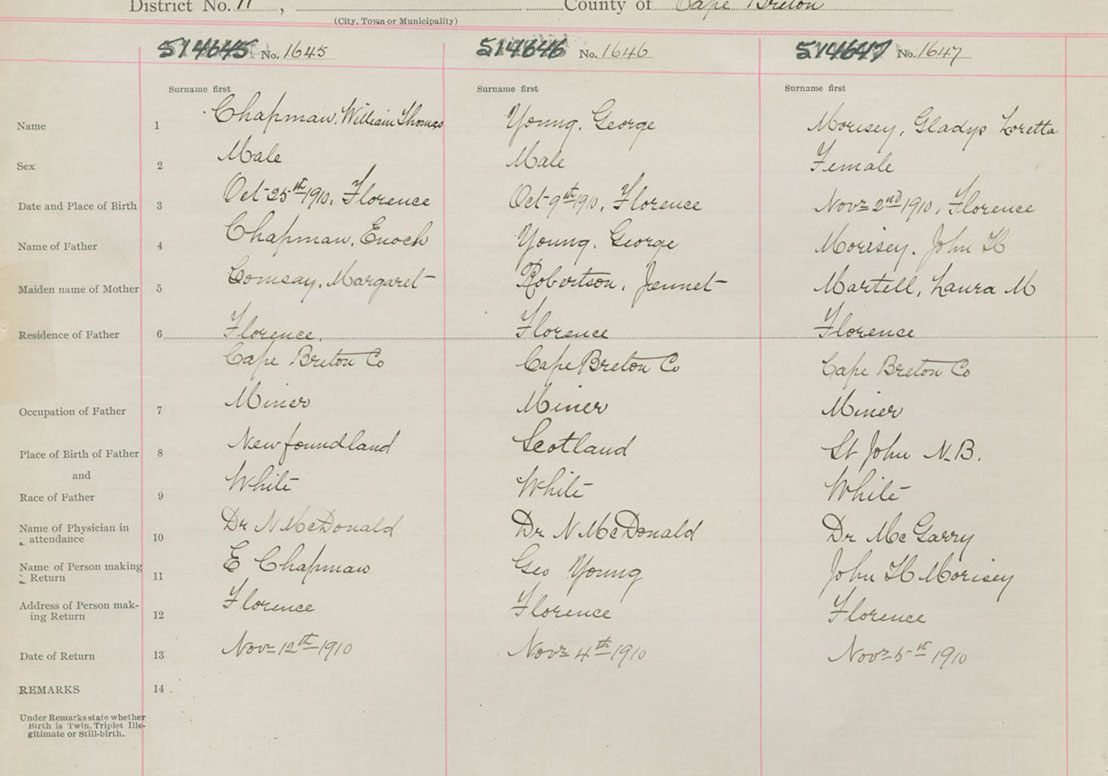 District No. 11, County of Cape Breton
(City, Town or Municipality)
514645 No. 1645 514646 No. 1646 514647 No. 1647
Surname first Surname first Surname first
Name 1 Chapman, William Thomas Young, George Morisey, Gladys Loretta
Sex 2 Male Male Female
Date and Place of Birth 3 Oct 25th 1910, Florence Oct 9th 1910, Florence Novr 2nd 1910, Florence
Name of Father 4 Chapman, Enoch Young, George Morisey, John H
Maiden name of Mother 5 Margaret Robertson, Jennet Martell, Laura M
Residence of Father 6 Florence, Florence Florence
Cape Breton Co Cape Breton Co Cape Breton Co
Occupation of Father 7 Miner Miner Miner
Place of Birth of Father 8 Newfoundland Scotland St John N.B.
and
Race of Father 9 White White White
Name of Physician in
attendance 10 Dr N McDonald Dr N McDonald Dr McGarry
Name of Person making
Return 11 E Chapman Geo Young John H Morisey
Address of Person mak-
ing Return 12 Florence Florence Florence
Date of Return 13 Novr 12th 1910 Novr 4th 1910 Novr 5st 1910
REMARKS 14
Under Remarks state whether
Birth is Twin, Triplet Ille-
gitimate or Still-birth.